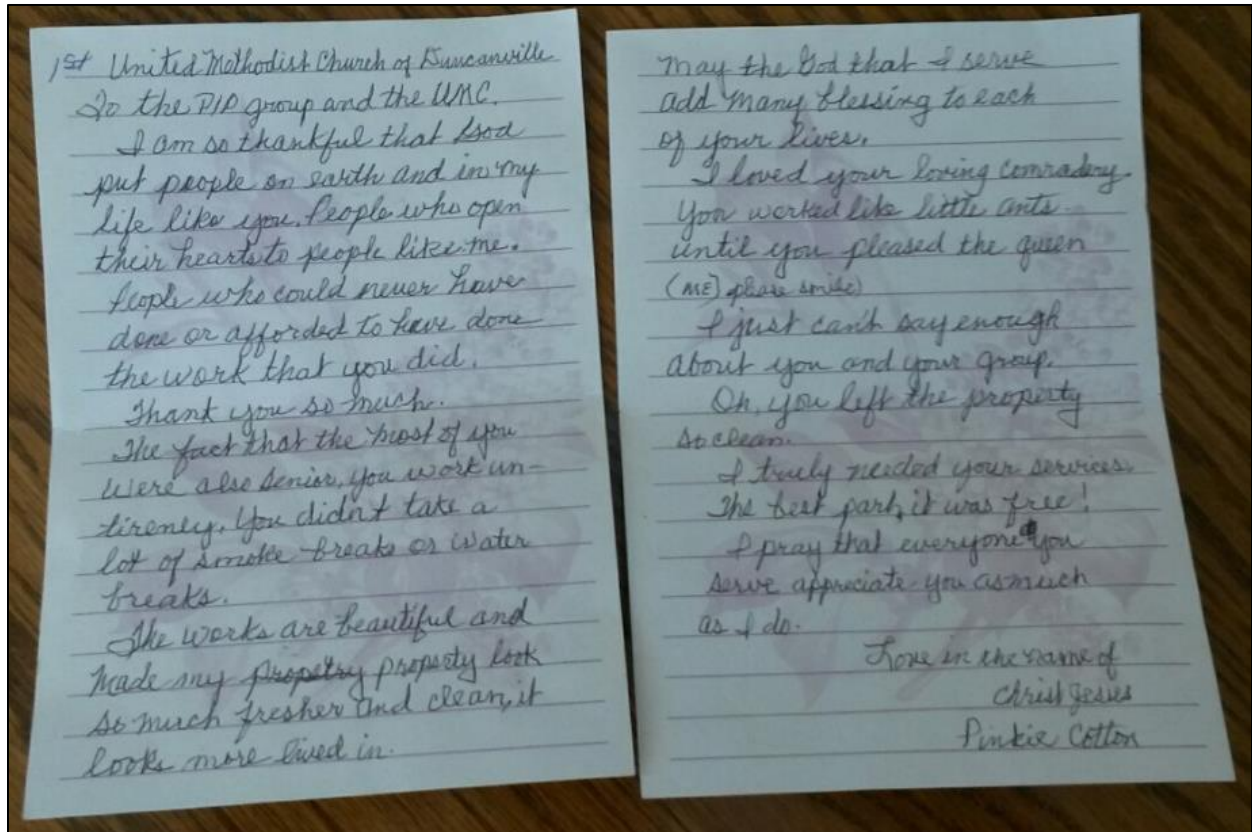 1st United Methodist Church of Duncanville
To the PIP group and the UMC.
I am so thankful that God
put people on earth and in my
life like you. People who open
their hearts to people like me.
People who could never have
done or afforded to have done
the work that you did.
Thank you so much.
The fact that the most of you
were also senior, you work un-
tireney. You didn't take a
lot of smoke breaks or water
breaks.
The works are beautiful and
made my propetry property look
so much fresher and clean, it
looks more lived in.
May the God that I serve
add many blessing to each
of your lives.
I loved your loving comradery.
You worked like little ants
until you pleased the queen
(ME) please smile)
I just can't say enough
about you and your group.
Oh, you left the property
so clean.
I truly needed your services.
The best part, it was free!
I pray that everyone you
serve appreciate you as much
as I do.
Love in the name of
Christ Jesus
Pinkie Cotton